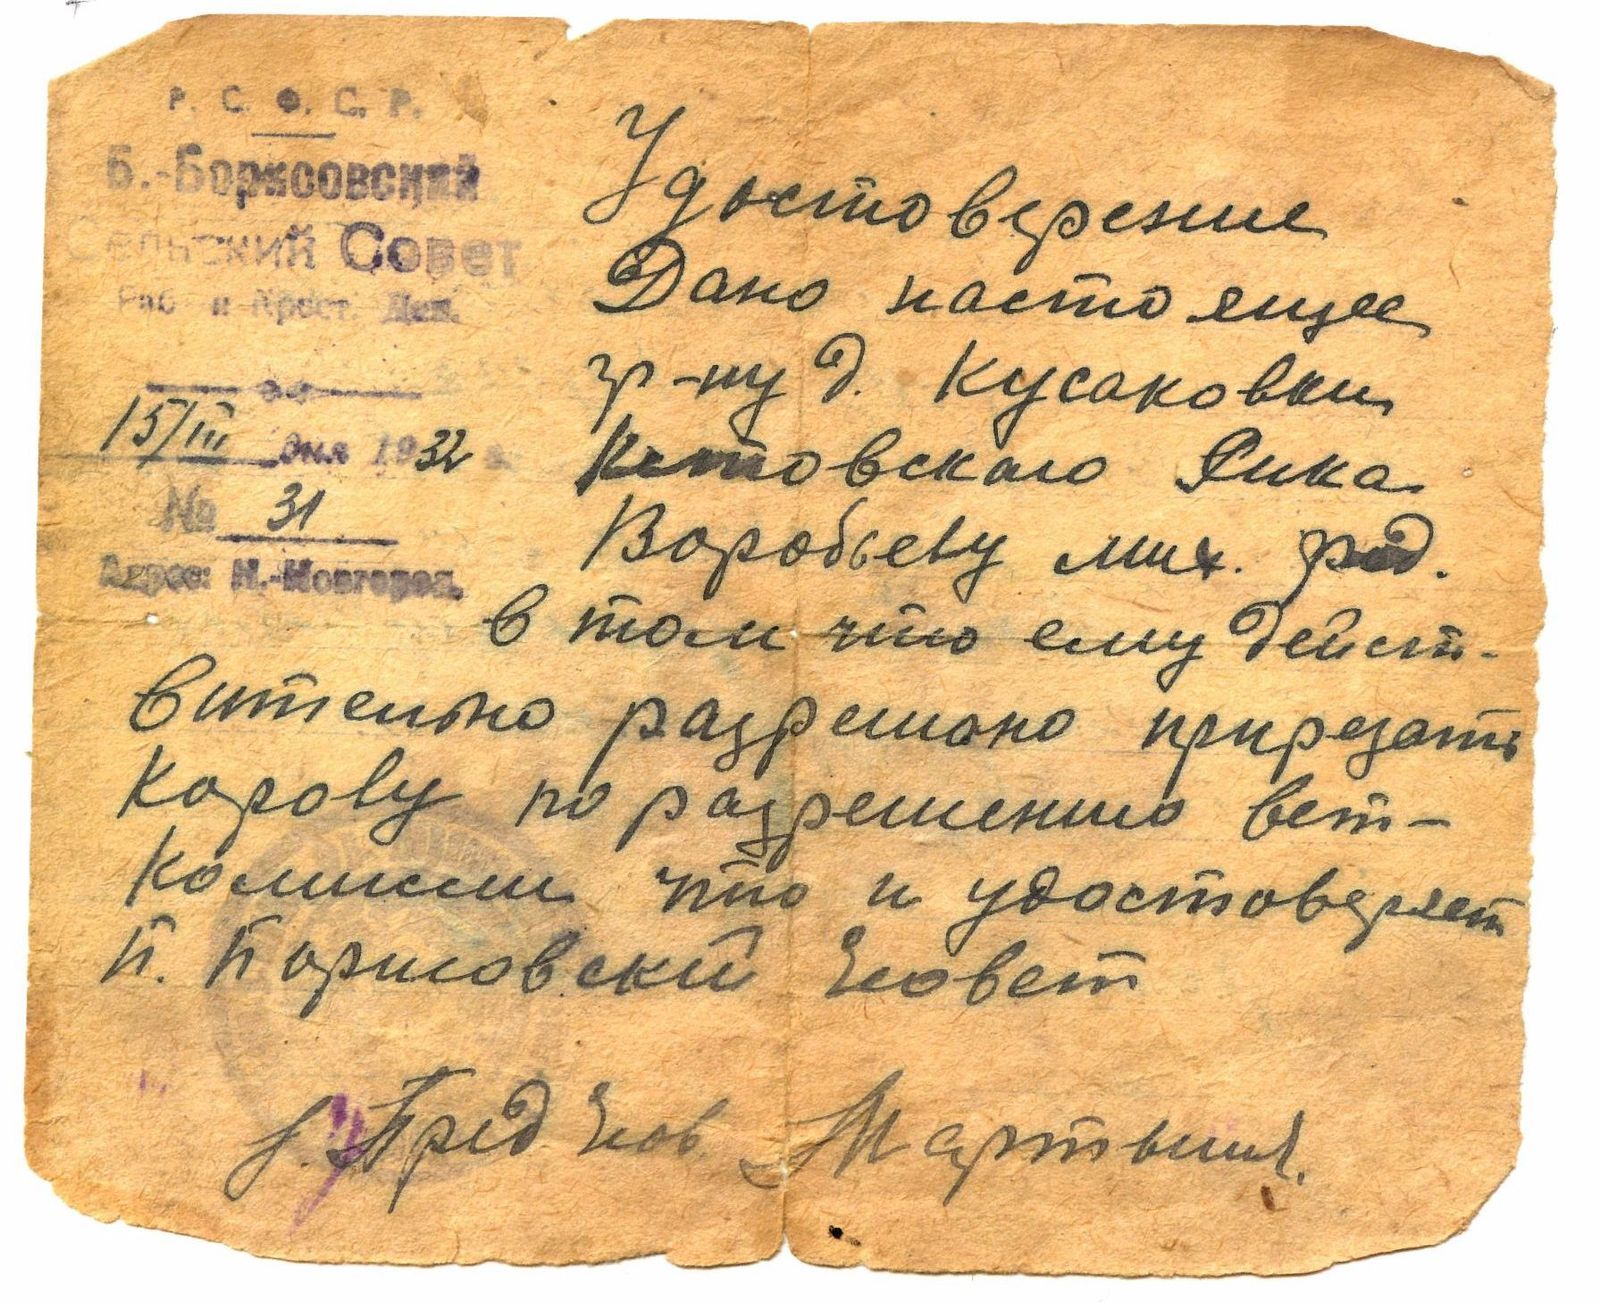 Р. С. Ф. С. Р.
Б.-Борисовский
Сельский Совет
Раб. и Крест. Деп.
15/III дня 1932 г.
№ 31
Адрес: Н.-Новгород.
Удостоверение
Дано настоящее
гр-ну д. Кусаковки
Кстовскаго Рика
Воробьеву Мих.
в том что ему дейст-
вительно разрешоно прирезать
Корову по разрешению вет-
Комисии что и удостоверяет
Б. Борисовский С/совет
Пред С/сов. Мартынов.